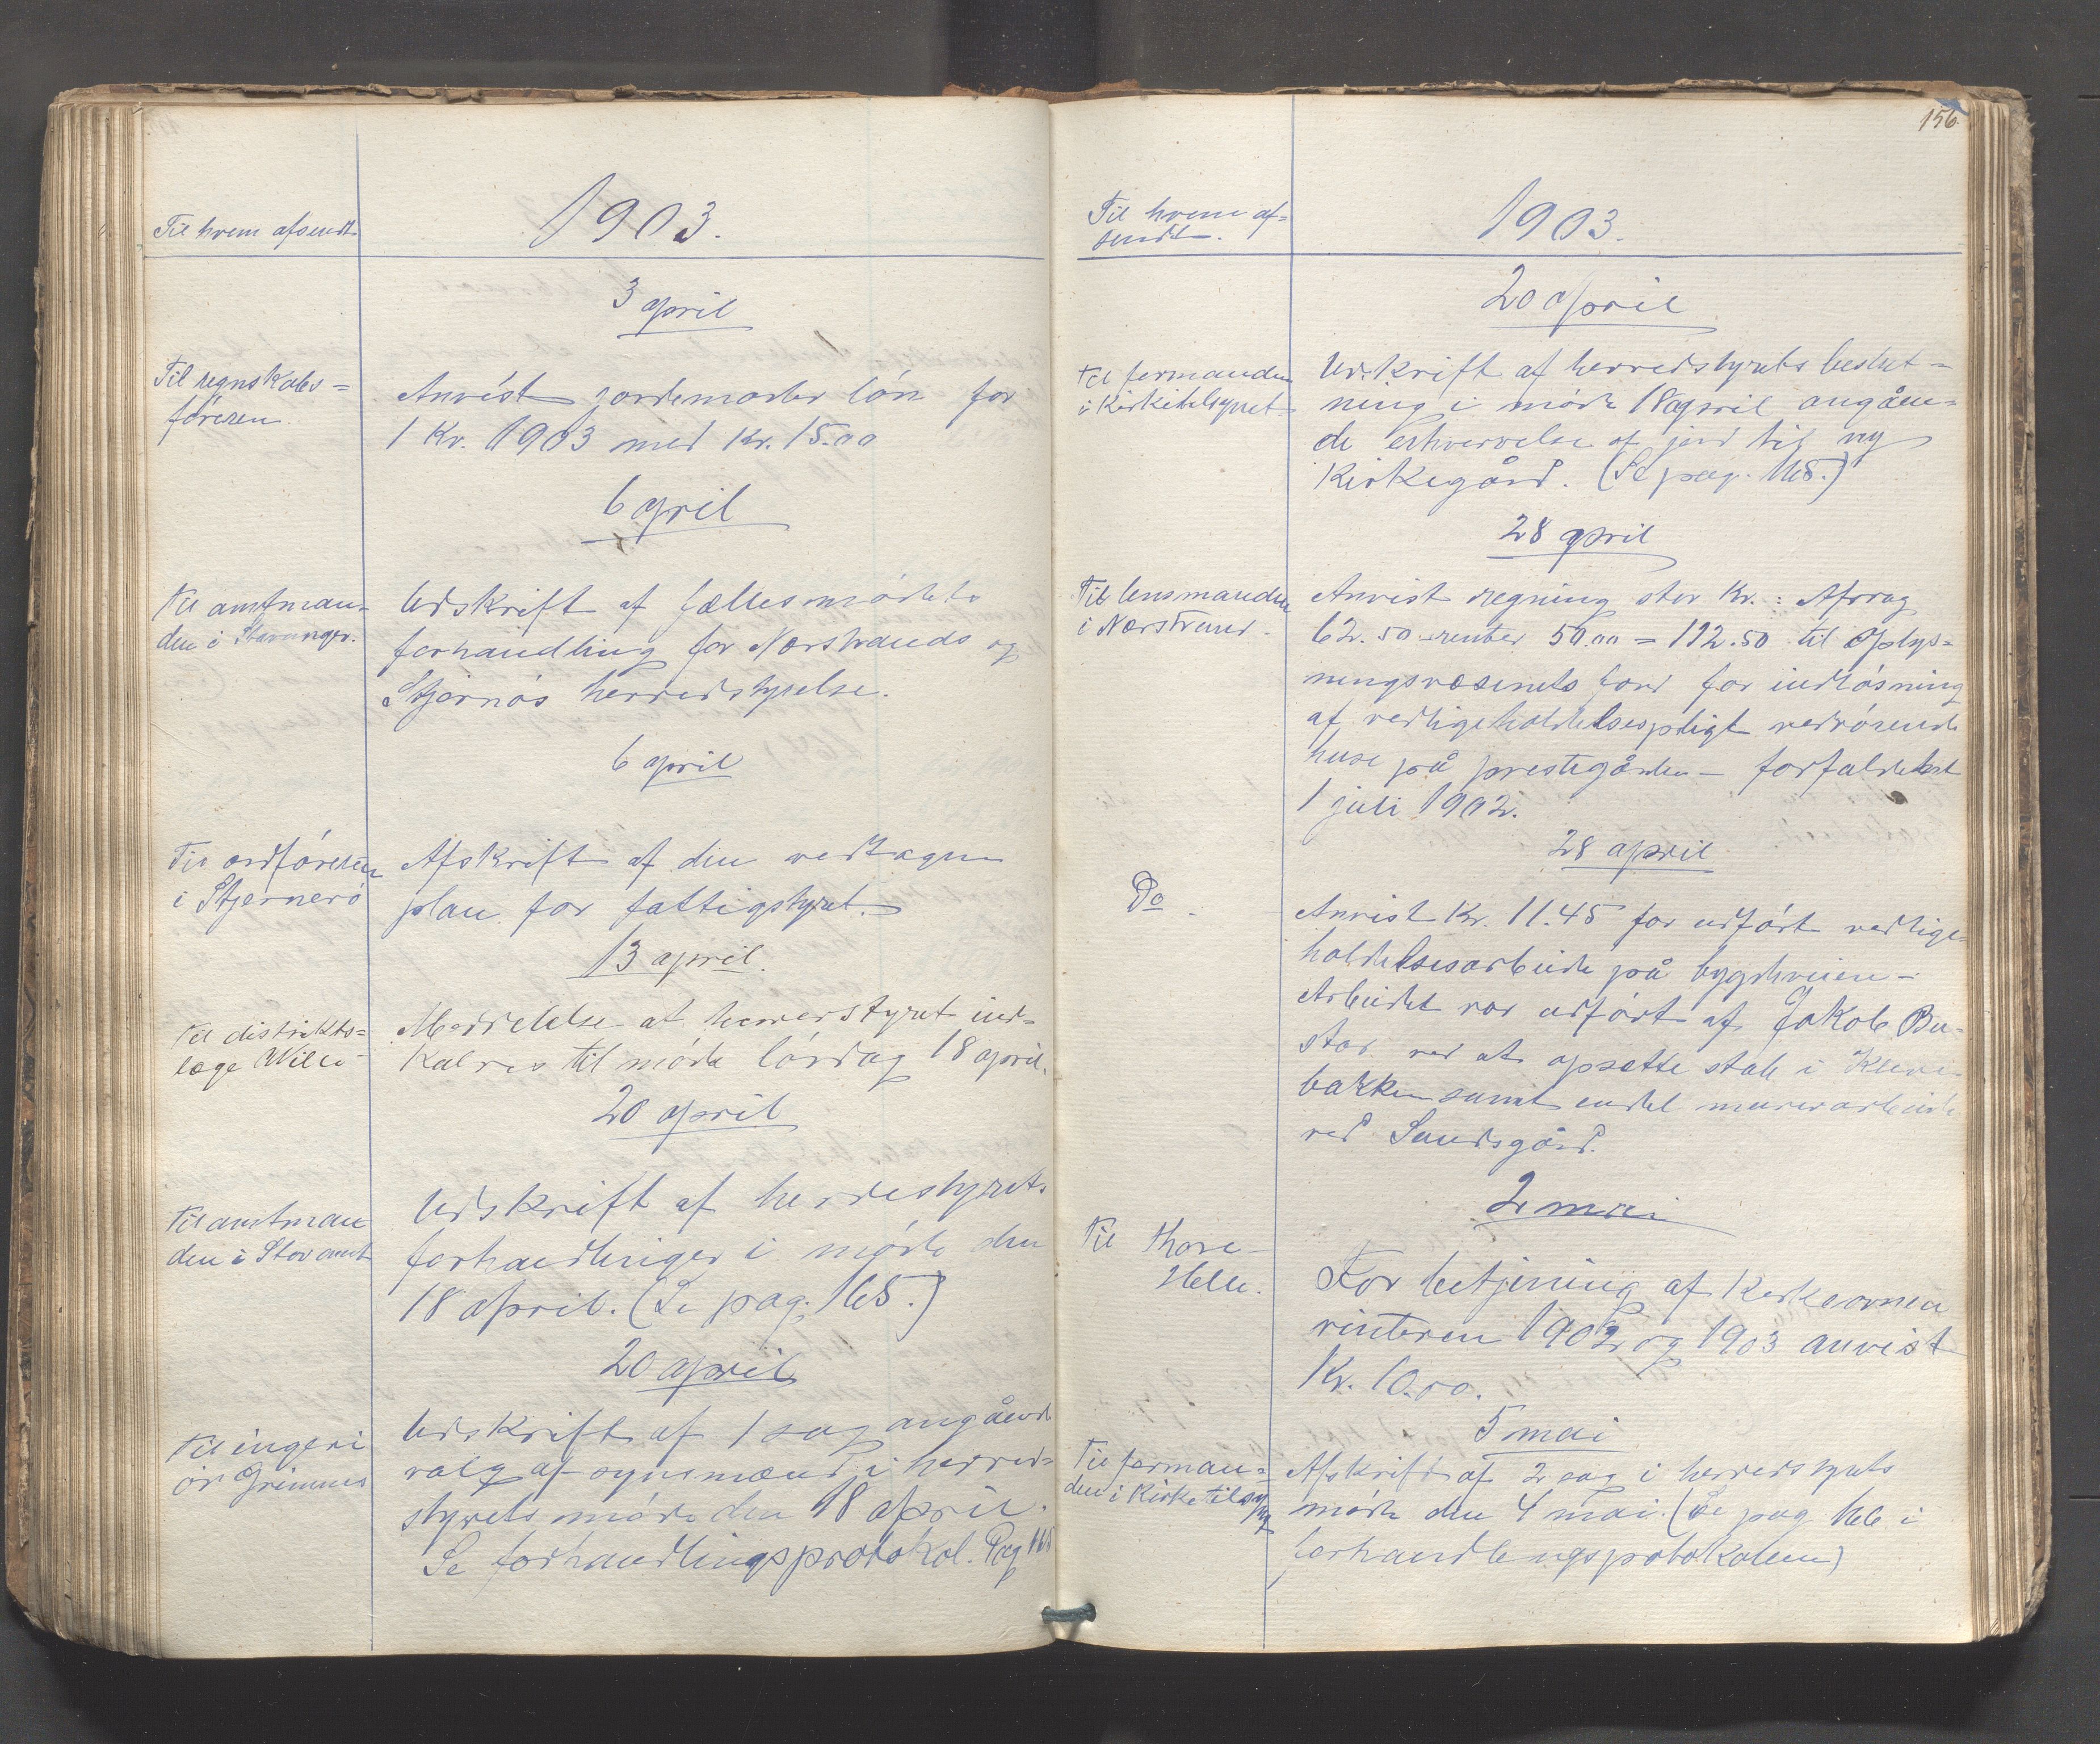 Til hvem afsendt
1903.
3 april
Til regnskabs=
føreren.
Anvist jordemoder løn for
1 Kv. 1903 med Kr. 15.00
6 april
Til amtman-
den i Stavanger.
Udskrift af fællesmødets
forhandling for Nærstrands og
Stjernøs herredstyrelse.
6 april
Til ordføreren
i Stjernerø
Afskrift af den vedtagne
plan for fattigstyret.
13 april.
Til distrikts=
læge Wille
Meddelelse at herredstyret ind-
kaldes til møde lördag 18 april.
20 april
Til amtman
den i Stav amt
Udskrift af herredestyrets
forhandlinger i møde den
18 april. (Se pag. 165.)
20 april
Til ingeni
ør Grimnes
Udskrift af 1 sag angående
valg af synsmænd i herred=
styrets møde den 18 april.
Se forhandlingsprotokol. Pag 165
156
Til hvem af=
sendt.
1903.
20 april
Til formanden
i Kirketilsynet
Udskrift af herredstyrets beslut=
ning i møde 18 april angåen=
de erhvervelse af jord til ny
Kirkegård. (Se pag. 165.)
28 april
Til lensmanden
i Nærstrand.
Anvist regning stor Kr.: Afdrag
62.50 renter 50.00 = 112.50 til Oplys=
ningsvæsenets fond for indløsning
af vedligeholdelsespligt vedrørende
huse på prestegården - forfaldent
1 juli 1902.
28 april
Do
Anvist Kr. 11.45 for udført vedlige=
holdelsesarbeide på bygdeveien -
Arbeidet var udført af Jakob Bu-
stad ved at opsætte stab i Kleve-
bakken samt endel murerarbeide
ved Sandsgård.
2 mai
Til Thore
Helle.
For betjening af kirkeovnen
vinteren 1902 og 1903 anvist
Kr. 10.00.
5 mai
Til forman=
den i Kirketilsyn
Afskrift af 2 sag i herredstyrets
møde den 4 mai. (Se pag 166 i
forhandlingsprotokolen)